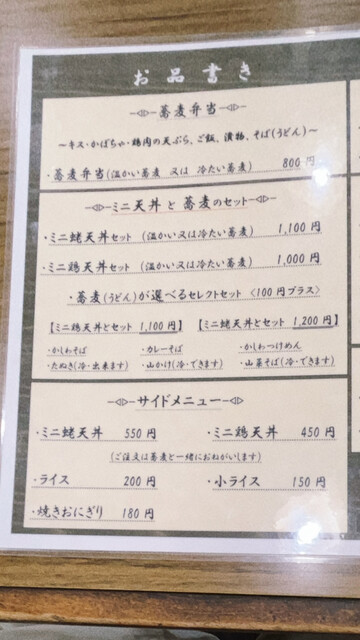 お品書き
蕎麦弁当
～キス・かぼちゃ・鶏肉の天ぷら、ご飯、漬物、そば(うどん)～
・蕎麦弁当(温かい蕎麦 又は 冷たい蕎麦) 800円
ミニ天丼と蕎麦のセット
・ミニ蛯天丼セット (温かい又は冷たい蕎麦) 1,100円
・ミニ鶏天丼セット (温かい又は冷たい蕎麦) 1,000円
・蕎麦(うどん)が選べるセレクトセット 〈100円プラス〉
【ミニ鶏天丼とセット 1,100円】 【ミニ蛯天丼とセット 1,200円】
・かしわそば ・カレーそば ・かしわつけめん
・たぬき(冷・出来ます) ・山かけ(冷・できます) ・山菜そば(冷・できます)
サイドメニュー
・ミニ蛯天丼 550円 ・ミニ鶏天丼 450円
(ご注文は蕎麦と一緒におねがいします)
・ライス 200円 ・小ライス 150円
・焼きおにぎり 180円